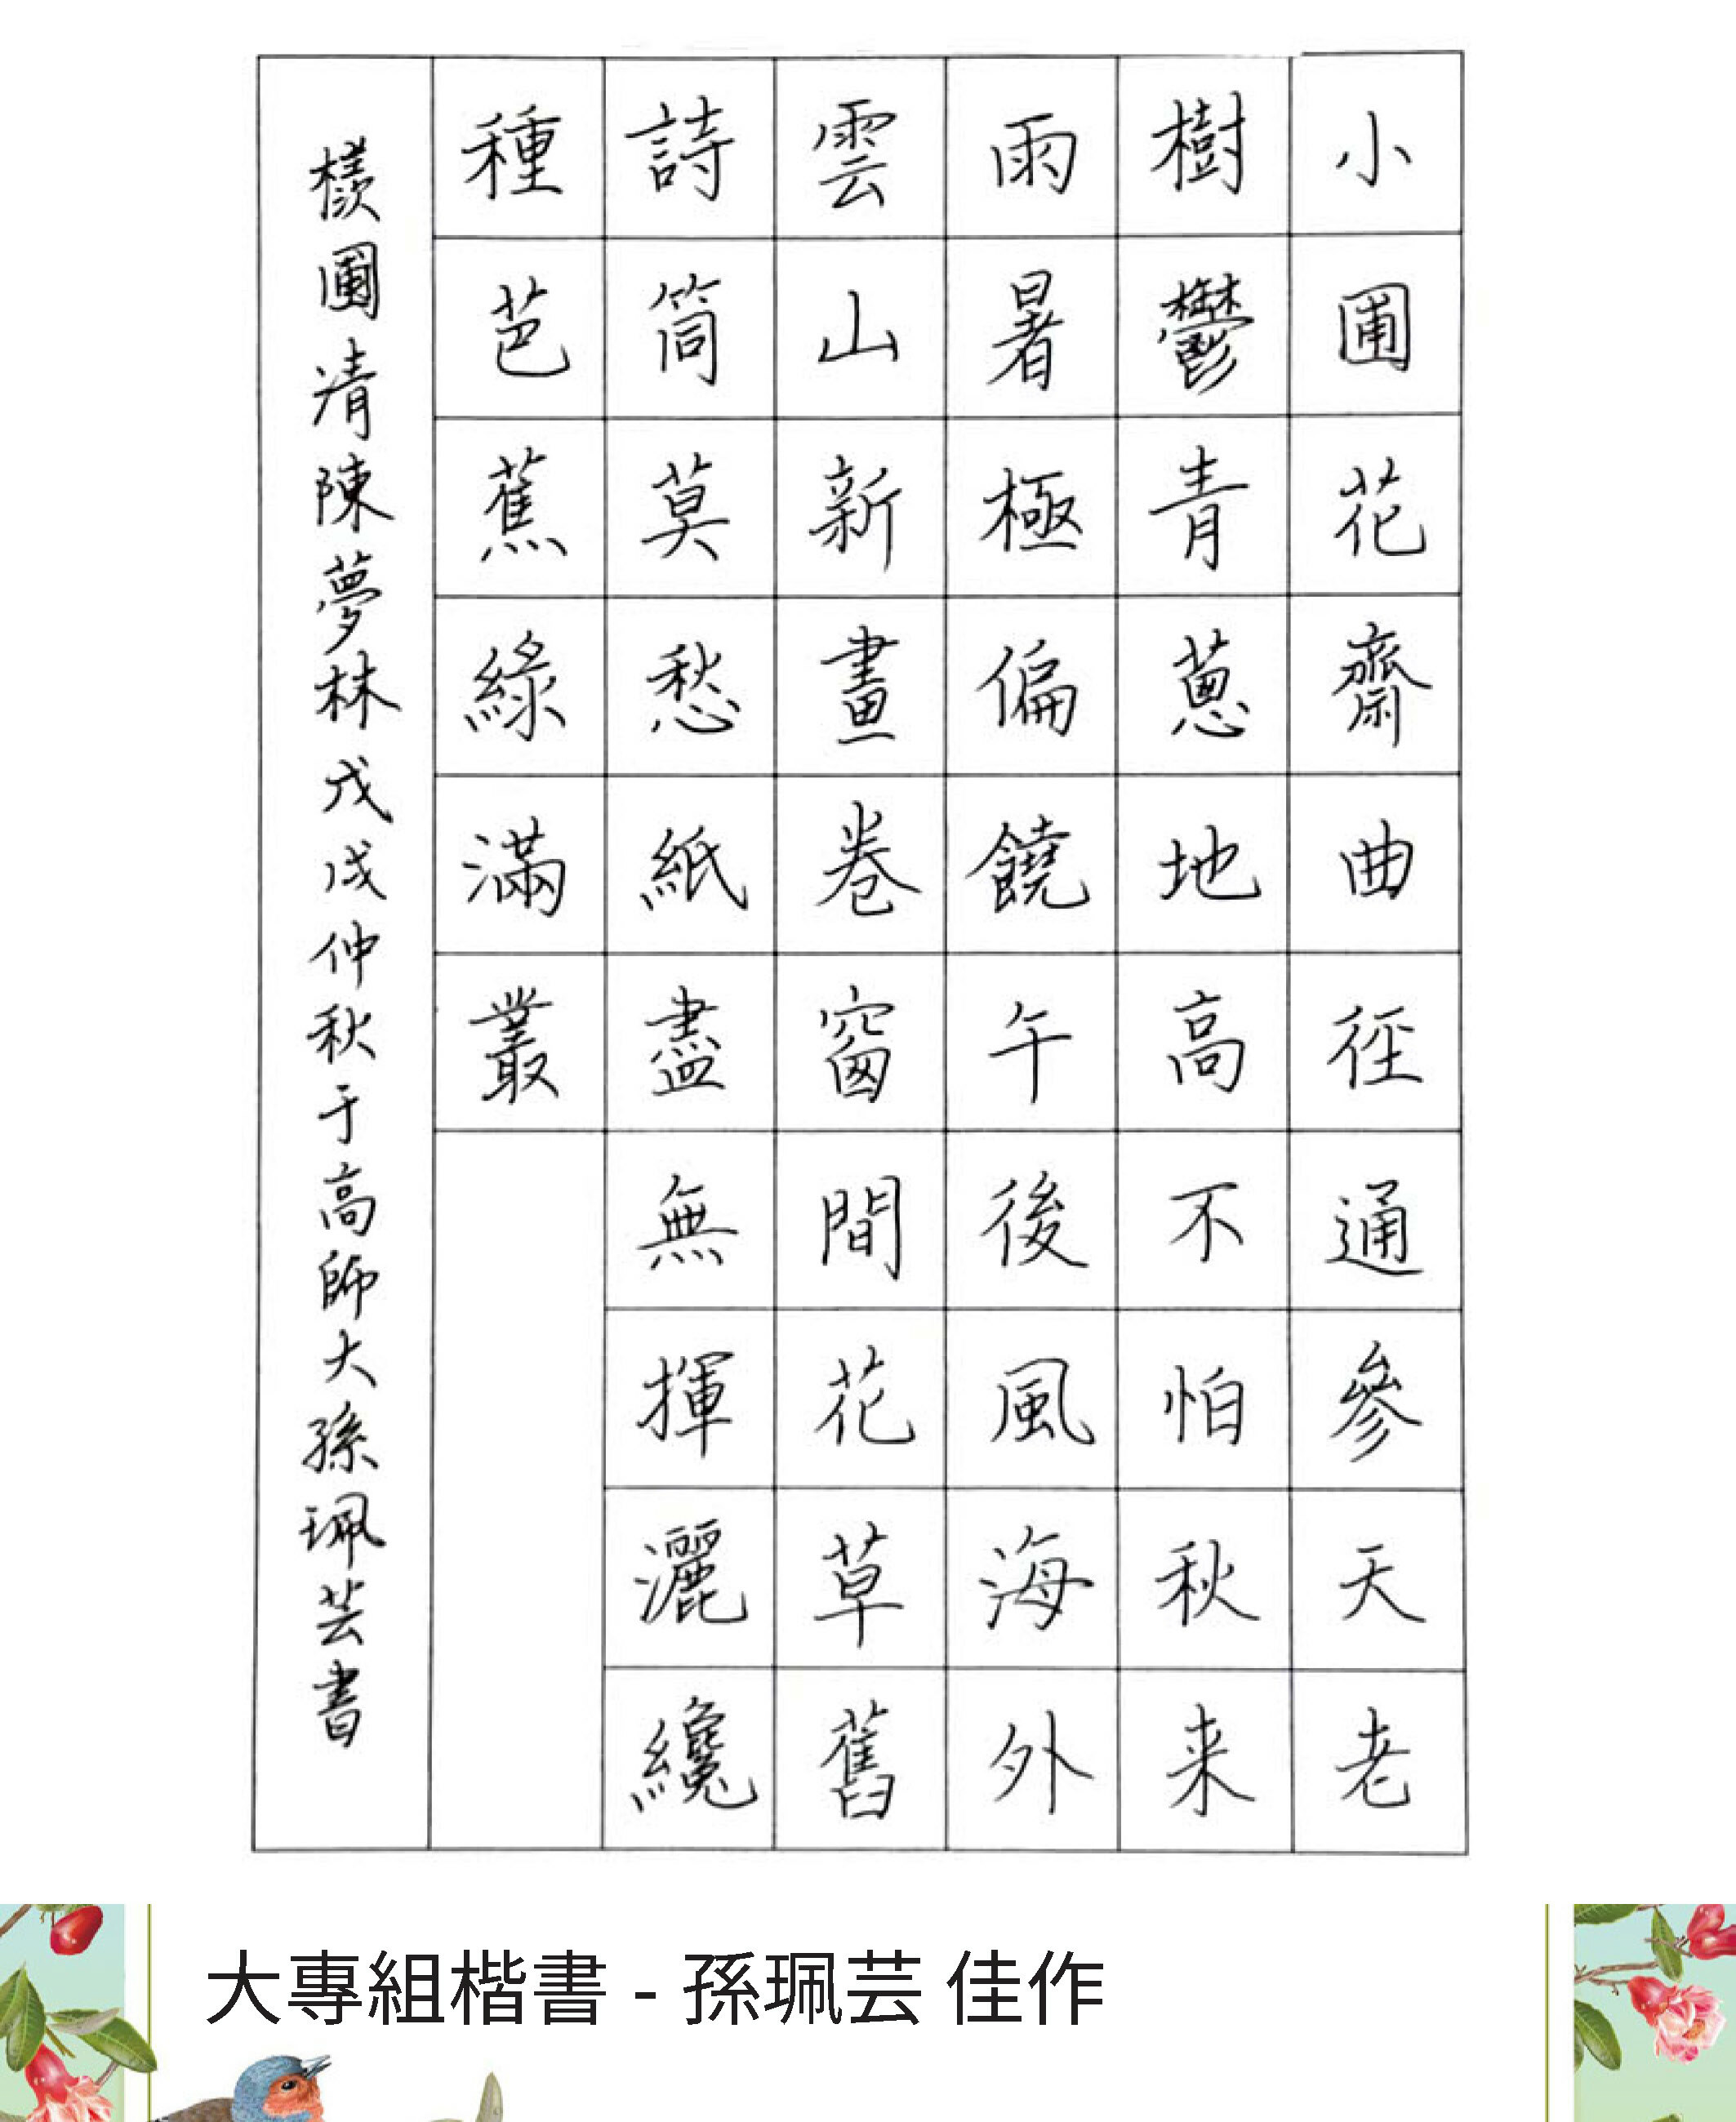 小圃花齋曲徑通參天老
樹鬱青蔥地高不怕秋来
雨暑極偏饒午後風海外
雲山新畫卷窗間花草舊
詩筒莫愁紙盡無揮灑纔
種芭蕉綠滿叢
檨圃清陳夢林戊戌仲秋于高師大孫珮芸書
大專組楷書 - 孫珮芸 佳作